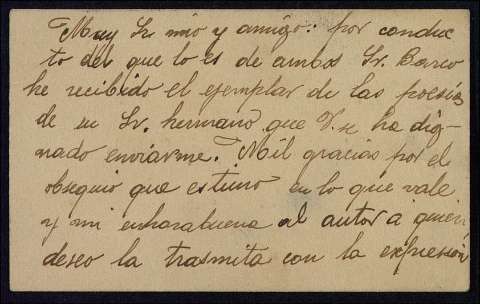 Muy Sr mio y amigo: por conduc
to del que lo es de ambos Sr. Barco
he recibido el ejemplar de las poesias
de su Sr. hermano que V. se ha dig-
nado enviarme. Mil gracias por el
obsequio que estimo en lo que vale
y mi enhorabuena al autor a quien
deseo la trasmita con la expresión